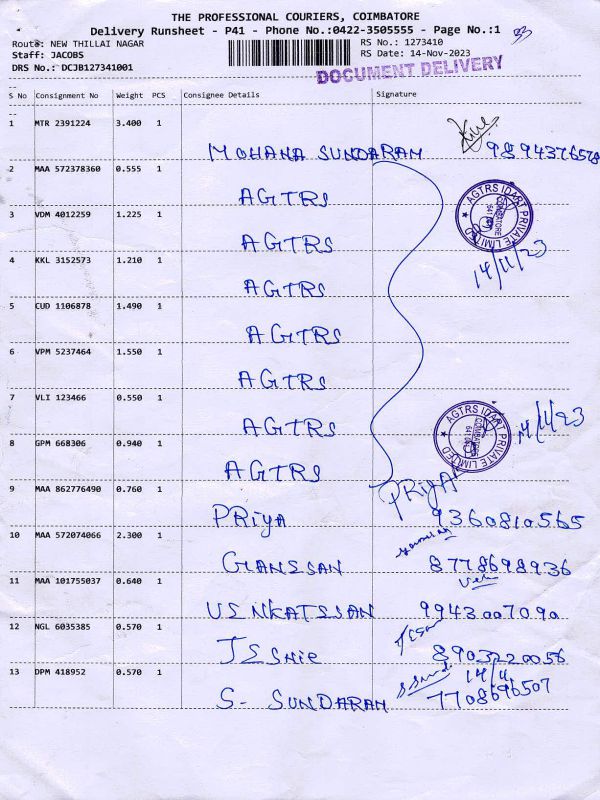 THE PROFESSIONAL COURIERS, COIMBATORE
Delivery Runsheet - P41 - Phone No.:0422-3505555 - Page No.:1
Route: NEW THILLAI NAGAR RS No.: 1273410
Staff: JACOBS RS Date: 14-Nov-2023
DRS No.: DCJB127341001
DOCUMENT DELIVERY
S No Consignment No Weight PCS Consignee Details Signature
1 MTR 2391224 3.400 1
MOHANA SUNDARAM 9894376578
2 MAA 572378360 0.555 1
AGTRS
AGTRS IDART PRIVATE LIMITED
COIMBATORE
3 VDM 4012259 1.225 1
AGTRS 14/11/23
4 KKL 3152573 1.210 1
AGTRS
5 CUD 1106878 1.490 1
AGTRS
6 VPM 5237464 1.550 1
AGTRS
7 VLI 123466 0.550 1
AGTRS 14/11/23
AGTRS IDART PRIVATE LIMITED
COIMBATORE
8 GPM 668306 0.940 1
AGTRS
9 MAA 862776490 0.760 1
PRiyA
PRiyA 9360810565
10 MAA 572074066 2.300 1
GANESSAN 8778698936
11 MAA 101755037 0.640 1
VENKATESSAN 9943007090
12 NGL 6035385 0.570 1
JESHIE 8903220056
13 DPM 418952 0.570 1 14/11
S. SUNDARAM 7708696507